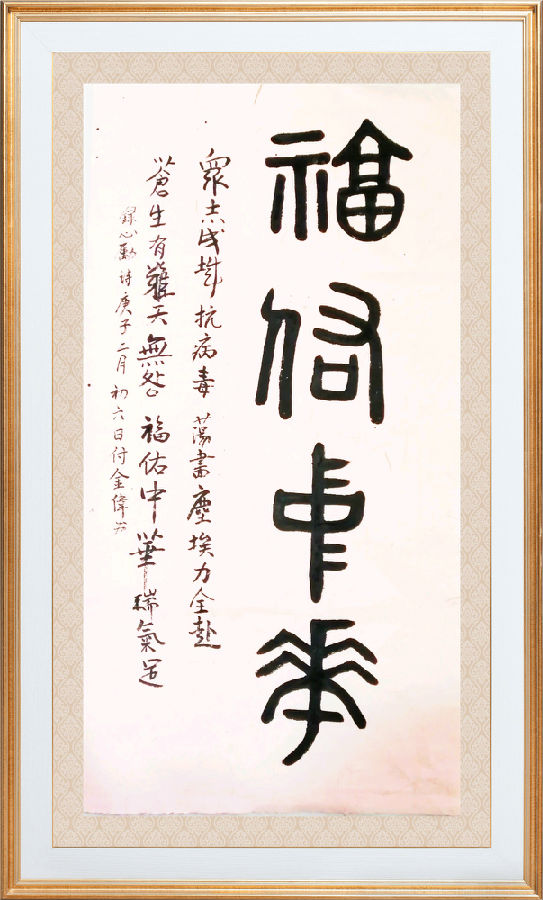 福佑中華
眾志成城抗病毒蕩盡塵埃力全赴
蒼生有難天無咎福佑中華瑞氣足
錄心詩庚子二月初六日付金偉书